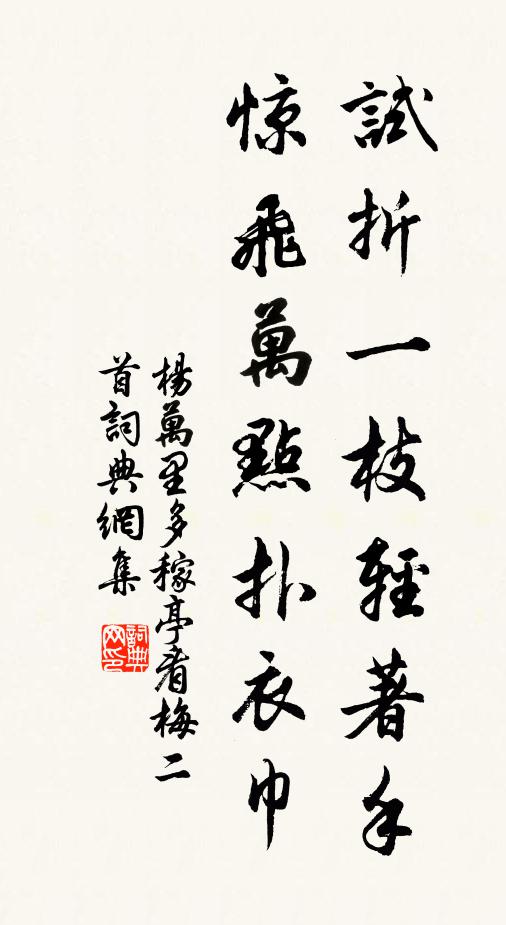 試折一枝輕著手
惊飛萬點扑衣巾
楊萬里多稼亭看梅二
首詞典網集
詞典
网印